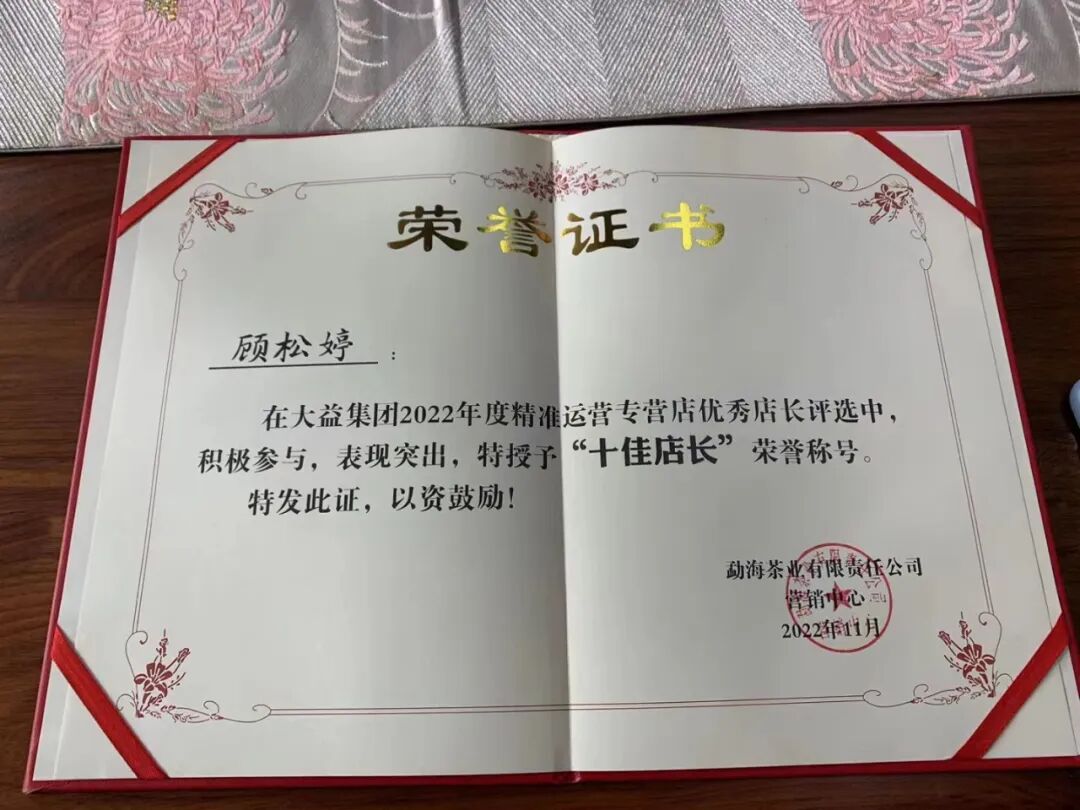 荣誉证书
顾松婷：
在大益集团2022年度精准运营专营店优秀店长评选中，
积极参与，表现突出，特授予“十佳店长”荣誉称号。
特发此证，以资鼓励！
勐海茶业有限责任公司
营销中心
2022年11月